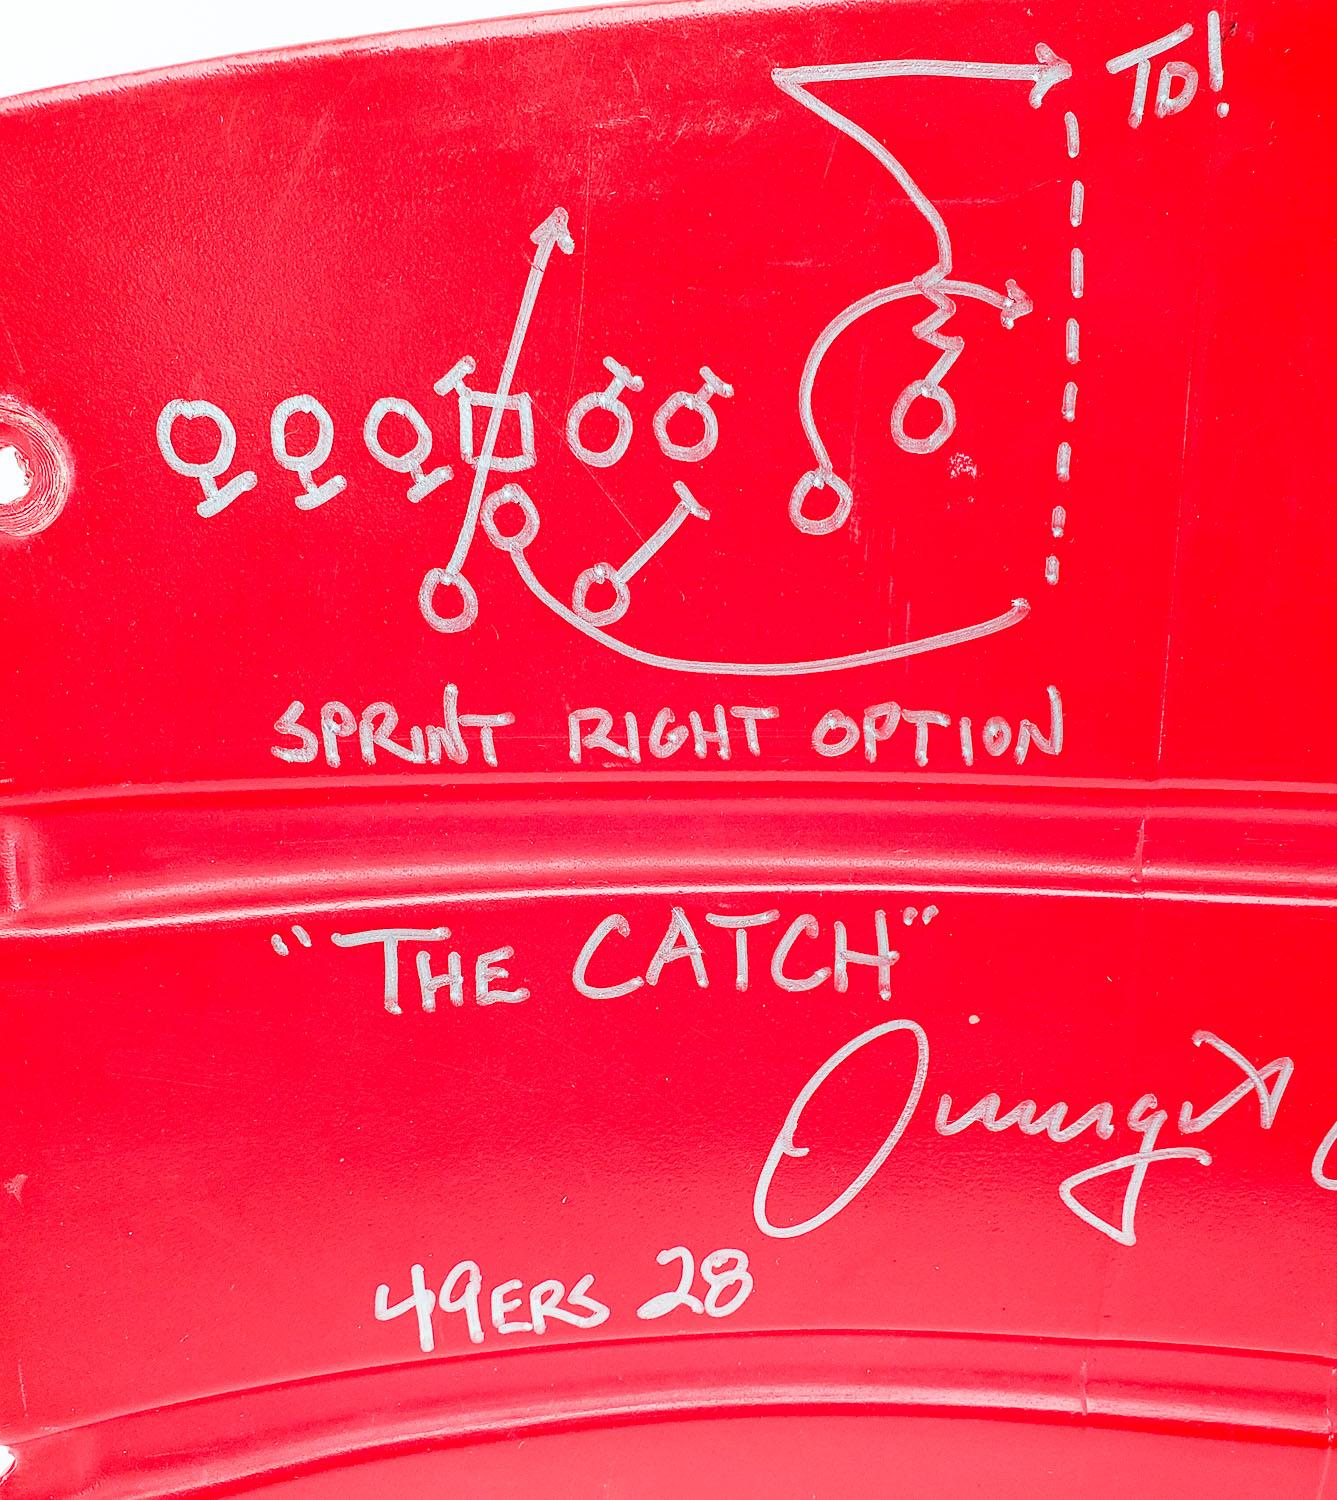 TD!
SPRINT RIGHT OPTION
"THE CATCH"
49ERS 28